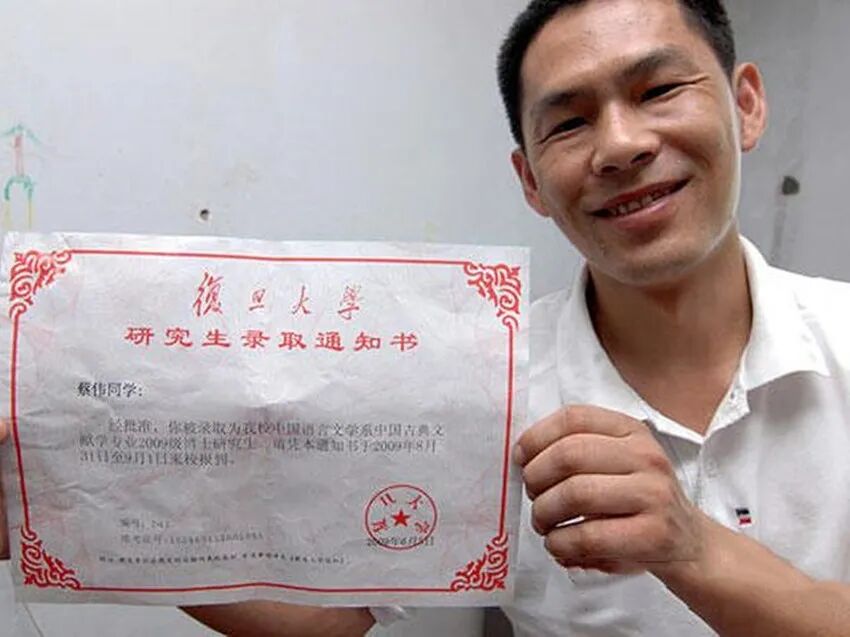 復旦大學
研究生录取通知书
蔡伟同学:
经批准，你被录取为我校中国语言文学系中国古典文
献学专业2009级博士研究生，请凭本通知书于2009年8月
31日至9月1日来校报到。
复旦大学
编号:
准考证号:
2009年6月8日
附注: